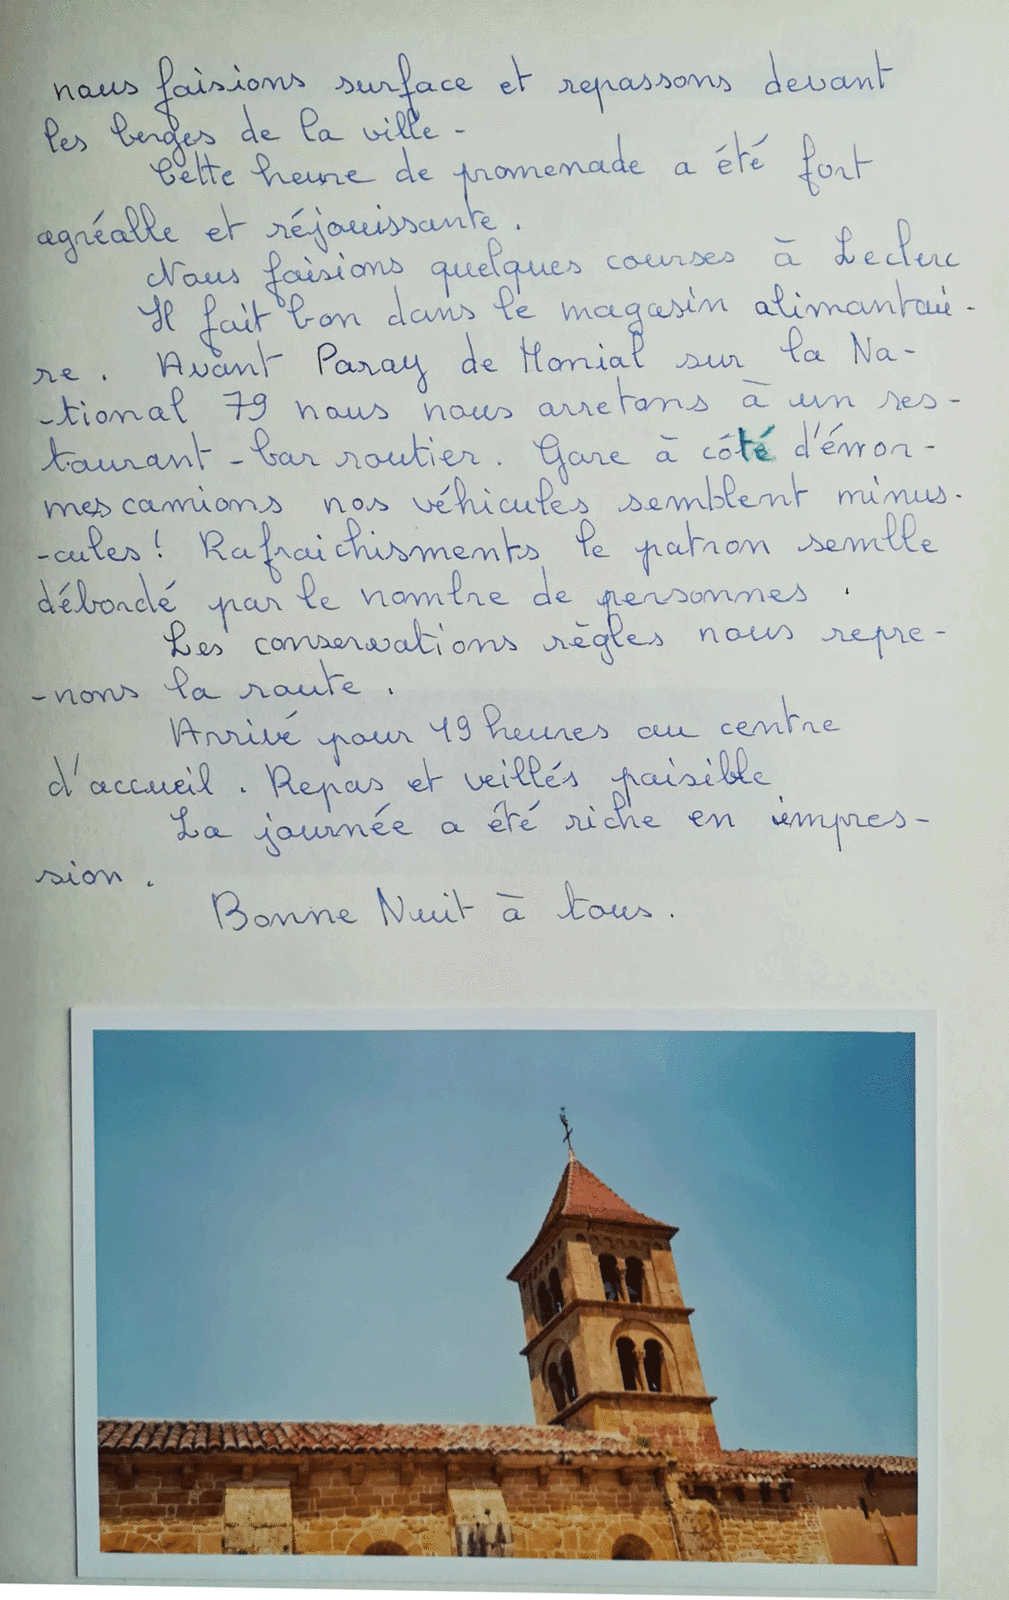 nous faisions surface et repassons devant
les berges de la ville -
Cette heure de promenade a été fort
agréable et réjouissante.
Nous faisions quelques courses à Leclerc
Il fait bon dans le magasin alimantai-
re. Avant Paray de Monial sur la Na-
-tional 79 nous nous arretons à un res-
taurant - bar routier. Gare à côté d'érror-
mes camions nos véhicules semblent minus-
-cules! Rafraichisments, le patron semble
débordé par le nombre de personnes.
Les conservations règles nous repre-
-nons la route.
Arrivé pour 19 heures au centre
d'accueil. Repas et veillés paisible
La journée a été riche en impres-
sion.
Bonne Nuit à tous.